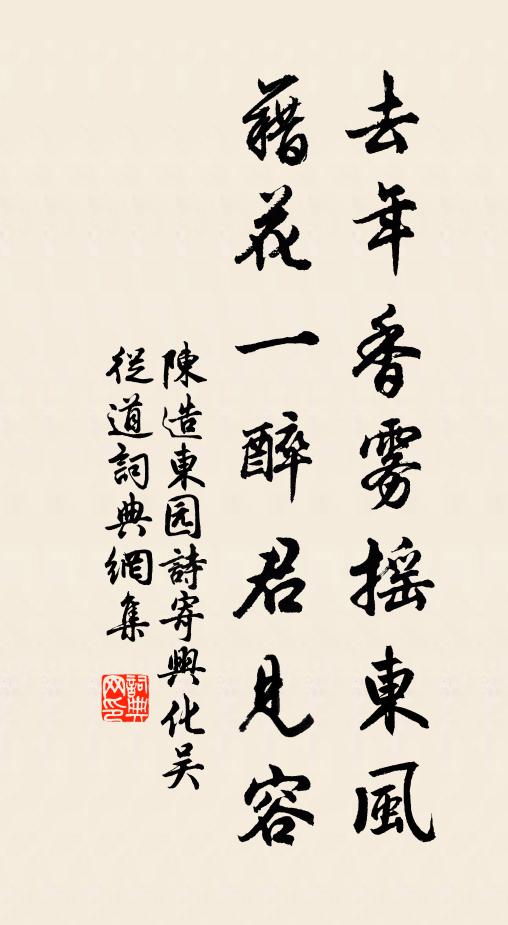 去年香雾摇東風
藉花一醉君見容
陳造東园詩寄興化吴
從道詞典網集
詞典网印